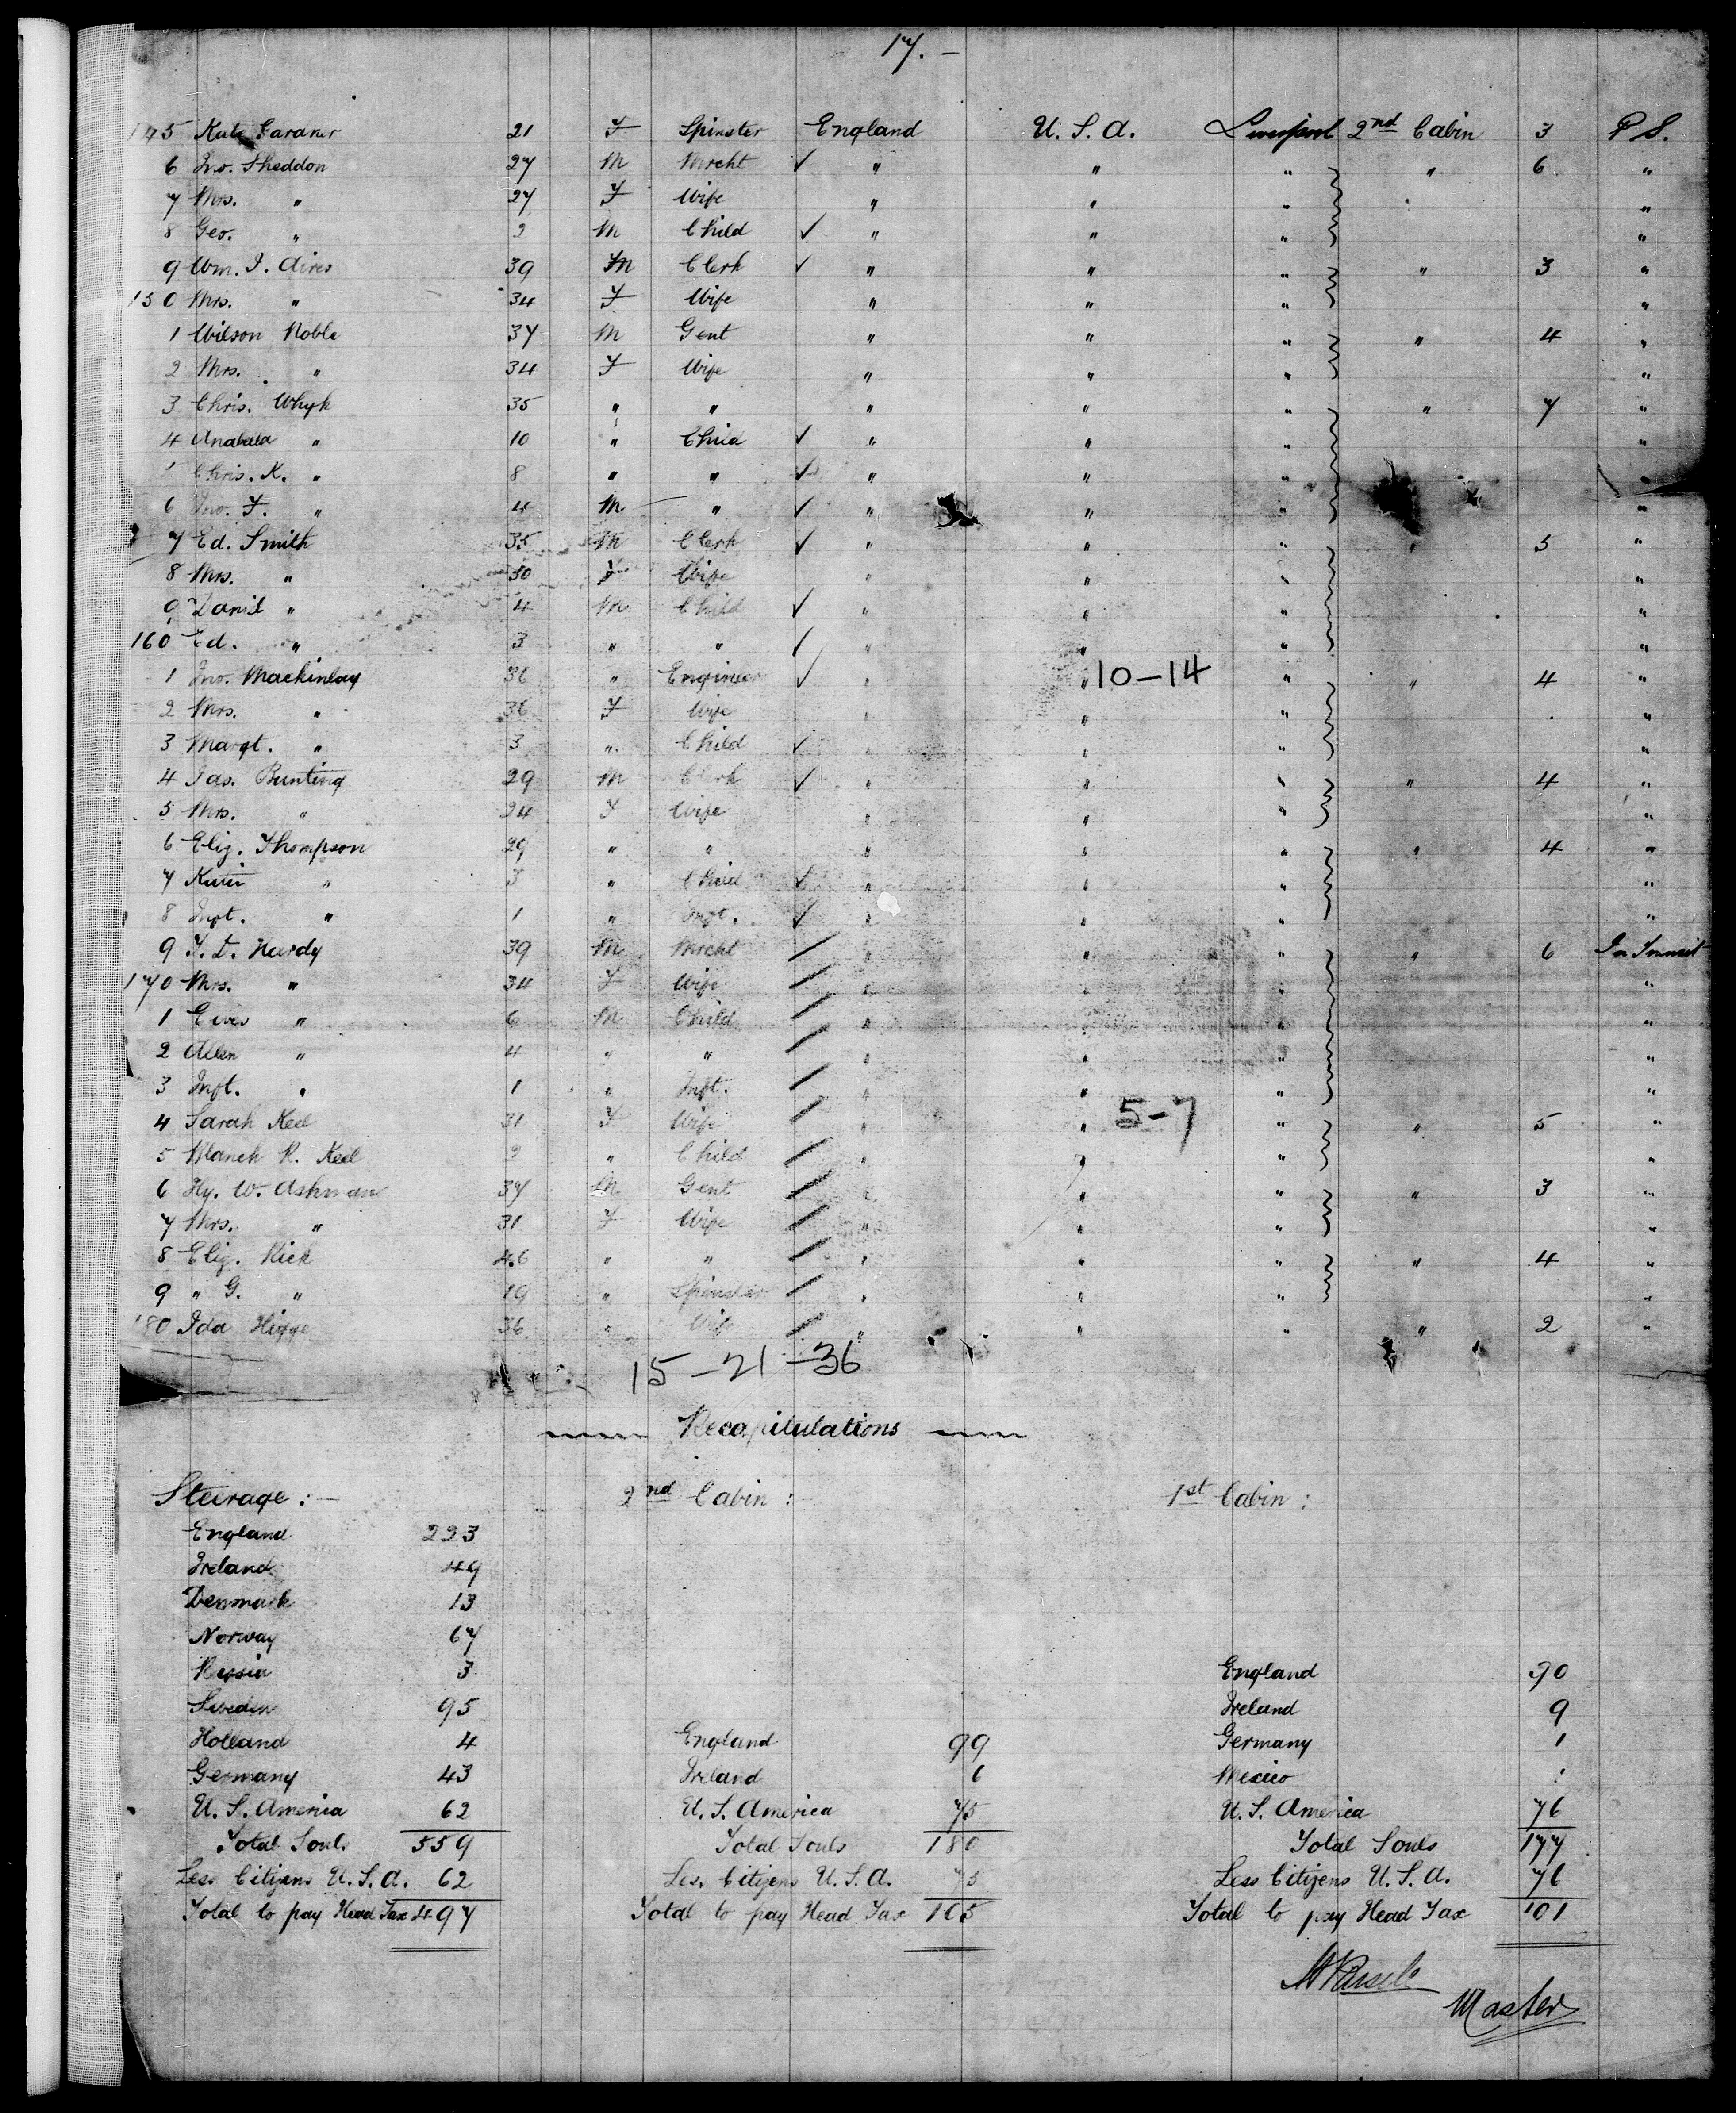 17. —
145 Kate Gardner 21 F Spinster England U. S. A. Liverpool 2nd Cabin 3 P. S.
6 Jno. Sheddon 27 M Mrcht ✓ " " " " 6 "
7 Mrs. " 27 F Wife " " " " "
8 Geo. " 2 M Child ✓ " " " "
9 Wm. J. Aires 39 M Clerk ✓ " " " " 3 "
150 Mrs. " 34 F Wife " " " "
1 Wilson Noble 37 M Gent " " " " 4 "
2 Mrs. " 34 F Wife " " " "
3 Chris. Whyk 35 " " " " " " 7 "
4 Anabella " 10 " Child ✓ " " " "
5 Chris. K. " 8 " " ✓ " " " "
6 Jno. F. " 4 M " ✓ " " " "
7 Ed. Smith 35 M Clerk ✓ " " " " 5 "
8 Mrs. " 30 F Wife " " " "
9 Daniel " 4 M Child ✓ " " " "
160 Ed. " 3 " " ✓ " " " "
1 Jno. Mackinlay 36 " Engineer ✓ " " 10-14 " " 4 "
2 Mrs. " 36 F Wife " " " "
3 Margt. " 3 " Child ✓ " " " "
4 Jas. Bunting 29 M Clerk ✓ " " " " 4 "
5 Mrs. " 24 F Wife " " " "
6 Eliz. Thompson 29 " " " " " " 4 "
7 Katie " 3 " Child ✓ " " " "
8 Inft. " 1 " Inft. ✓ " " " "
9 T. D. Hardy 39 M Mrcht / " " " " 6 In Transit
170 Mrs. " 34 F Wife / " " " "
1 " 6 M Child / " " " "
2 Allen " 4 " " / " " " "
3 Inft. " 1 " Inft. / " " " "
4 Sarah Keel 31 F Wife / " " 5-7 " " 5 "
5 Blanch R. Keel 2 " Child / " " " "
6 Hy. W. Ashman 37 M Gent / " " " " 3 "
7 Mrs. " 31 F Wife / " " " "
8 Eliz. Kick 46 " " / " " " " 4 "
9 " G. " 19 " Spinster / " " " "
180 Ida Higge 36 " Wife / " " " " 2 "
15-21-36
Recapitulations
Steerage :— 2nd Cabin :— 1st Cabin :
England 223
Ireland 49
Denmark 13
Norway 67
Russia 3 England 90
Sweden 95 Ireland 9
Holland 4 England 99 Germany 1
Germany 43 Ireland 6 Mexico 1
U. S. America 62 U. S. America 75 U. S. America 76
Total Souls 559 Total Souls 180 Total Souls 177
Less Citizens U. S. A. 62 Less Citizens U. S. A. 75 Less Citizens U. S. A. 76
Total to pay Head Tax 497 Total to pay Head Tax 105 Total to pay Head Tax 101
Master